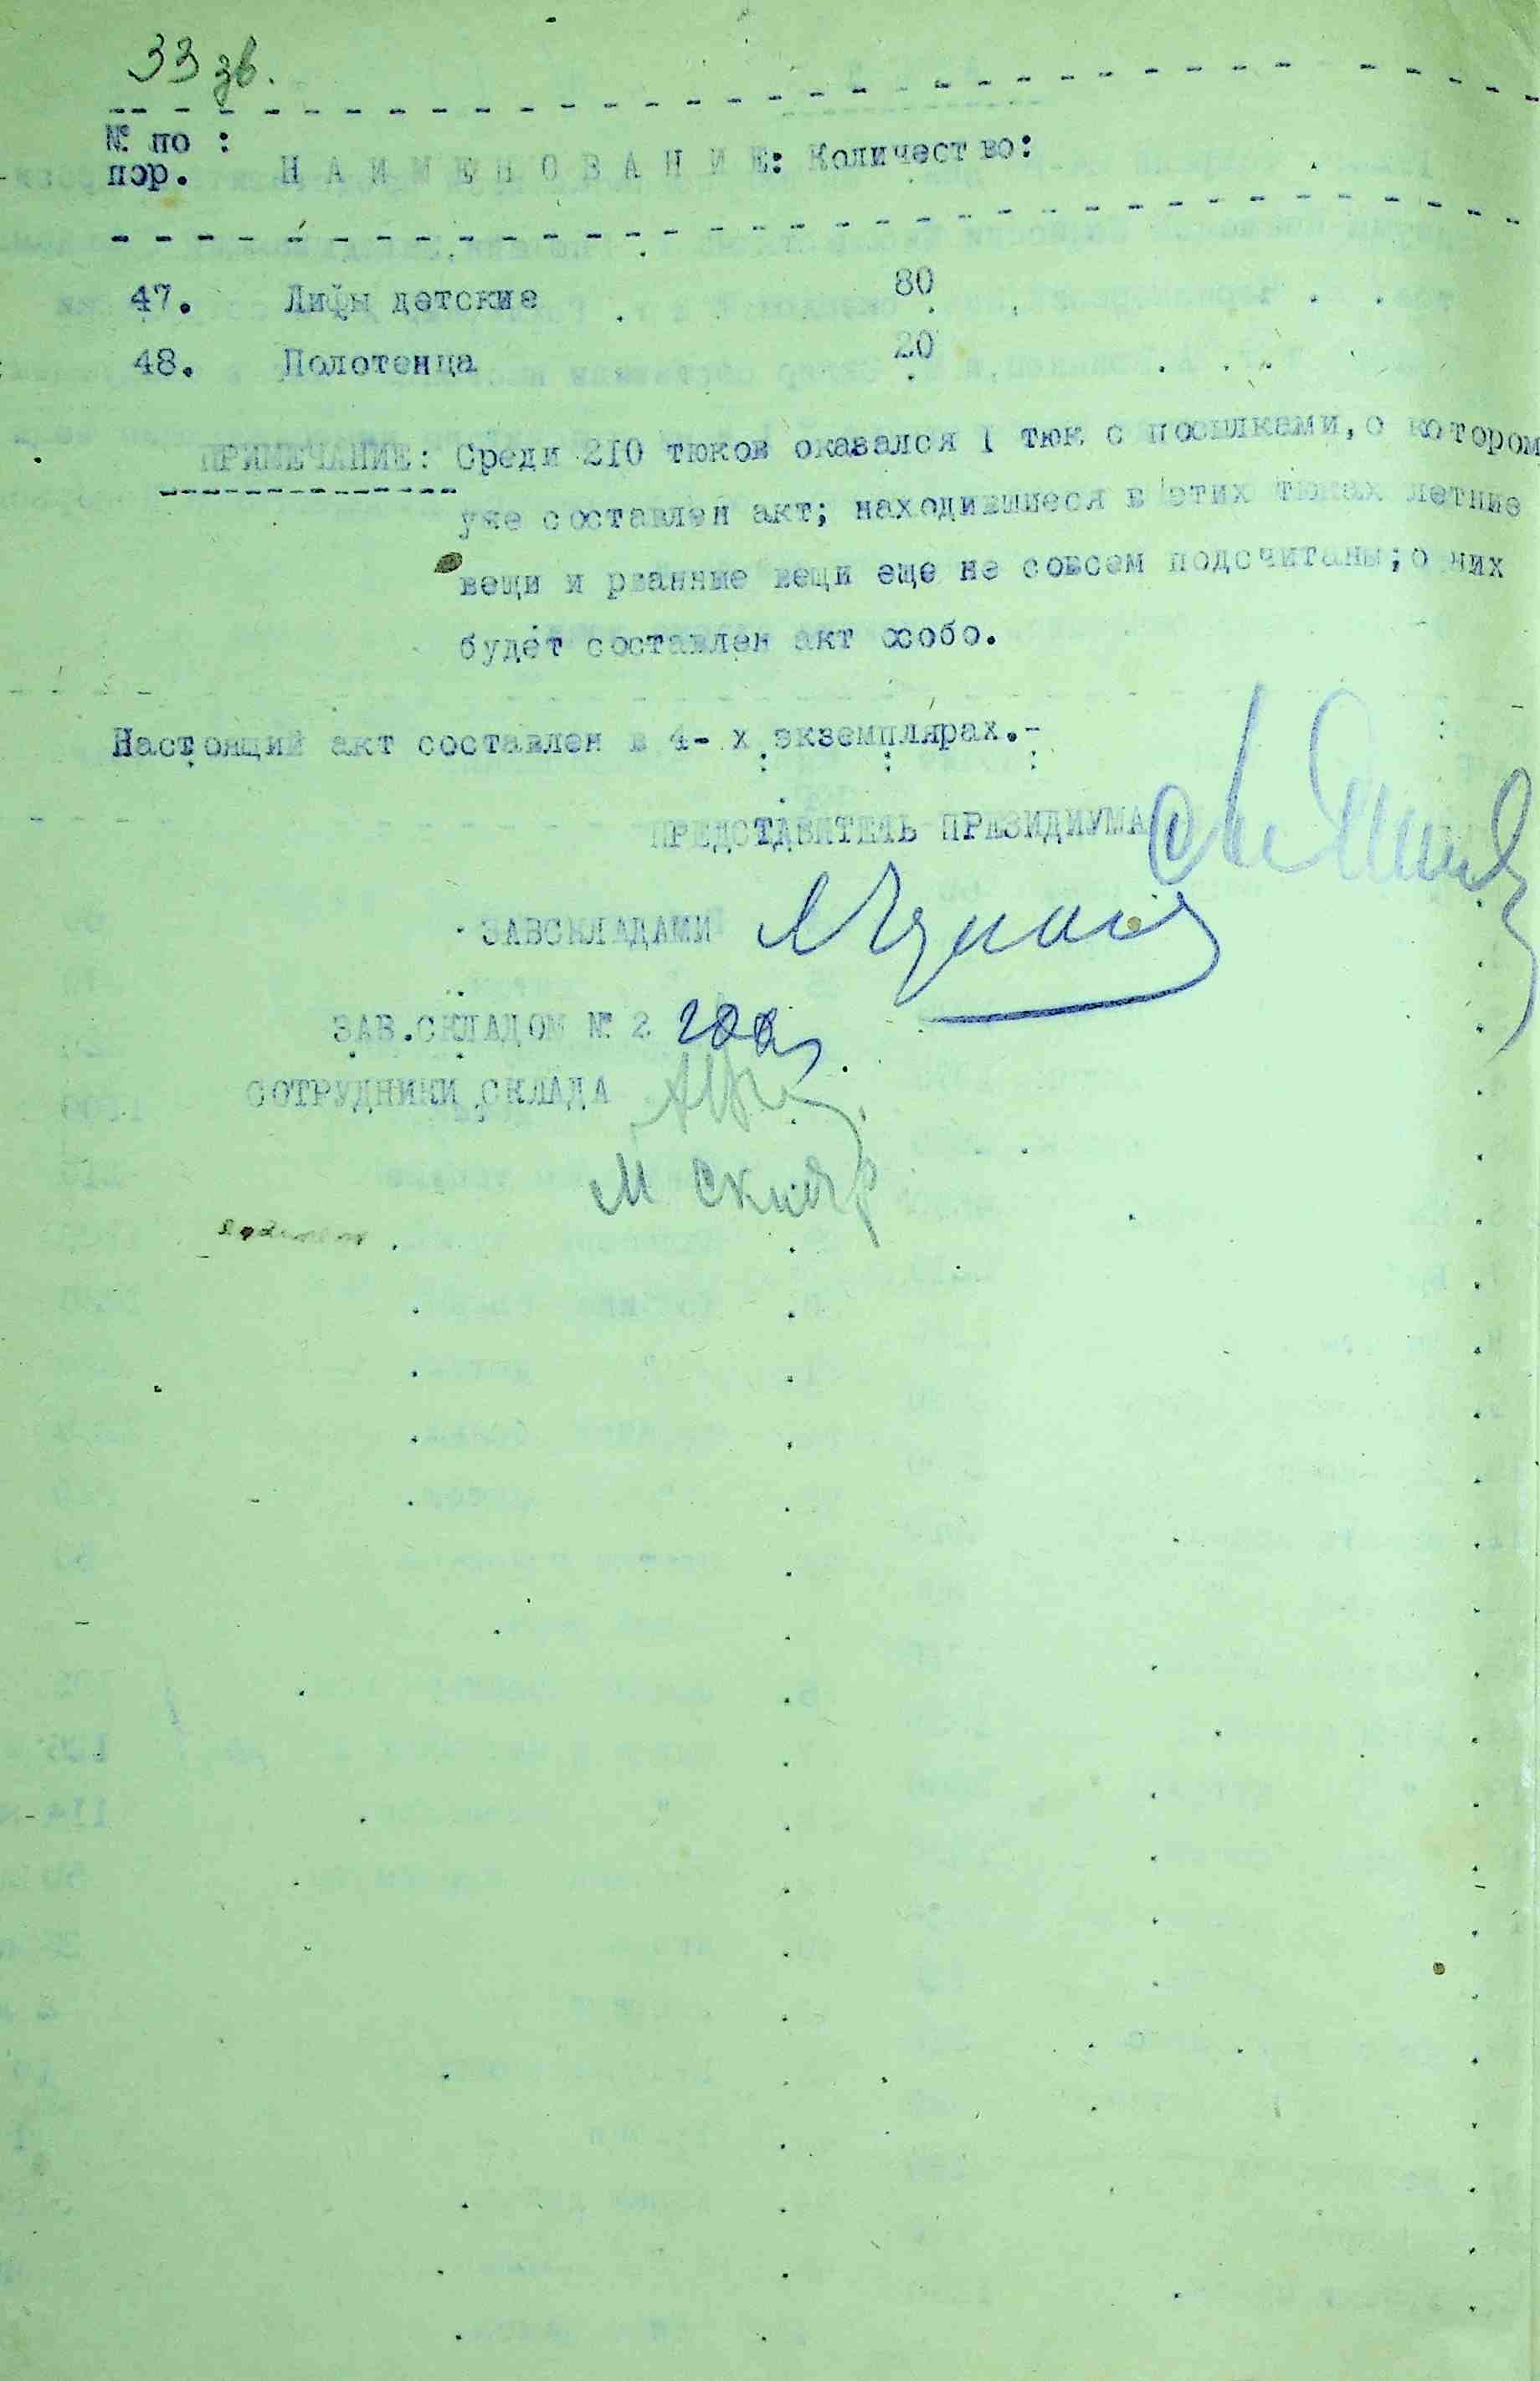 33 зв.
№ по :
пор. Н А И М Е Н О В А Н И Е: Количество:
47. Лифы детские 80
48. Полотенца 20
ПРИМЕЧАНИЕ: Среди 210 тюков оказался 1 тюк с посылками, о котором
уже составлен акт; находившиеся в этих тюках летние
вещи и рванные вещи еще не совсем подсчитаны; о них
будет составлен акт особо.
Настоящий акт составлен в 4-х экземплярах.-
ПРЕДСТАВИТЕЛЬ ПРЕЗИДИУМА
ЗАВСКЛАДАМИ
ЗАВ.СКЛАДОМ № 2
СОТРУДНИКИ СКЛАДА
М Скляр